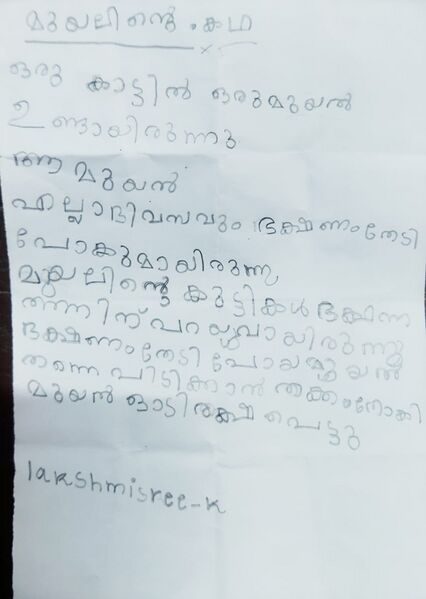 മുയലിന്റെ . കഥ
ഒരു കാട്ടിൽ ഒരുമുയൽ
ഉണ്ടായിരുന്നു
ആ മുയൽ
എല്ലാദിവസവും ഭക്ഷണംതേടി
പോകുമായിരുന്നു
മുയലിന്റെ കുട്ടികൾ ഭക്ഷണ
ത്തിന് പറയുവായിരുന്നു
ഭക്ഷണംതേടി പോയമുയൽ
തന്നെ പിടിക്കാൻ തക്കംനോക്കി
മുയൽ ഓടി രക്ഷ പെട്ടു
lakshmisree-k